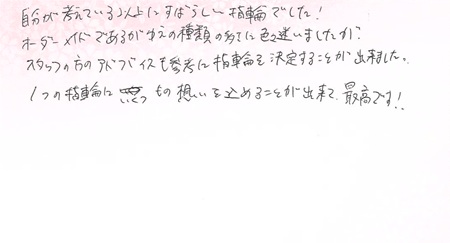 自分が考えている以上にすばらしい指輪でした!
オーダーメイドであるがゆえの種類の多さに色々迷いましたが、
スタッフの方のアドバイスも参考に指輪を決定することが出来ました。
1つの指輪に いくつもの想いを込めることが出来て、最高です!